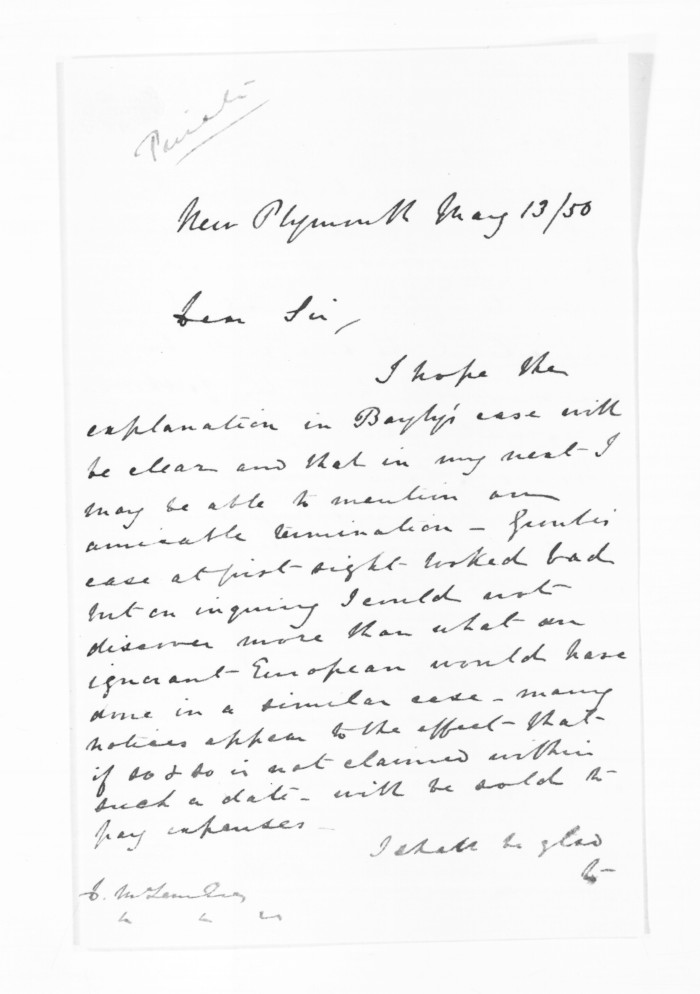 Private
New Plymouth May 13/50
Dear Sir,
I hope the
explanation in Bayly's case will
be clear and that in my next I
may be able to mention an
amicable termination –
case at first sight looked bad
but on inquiring I could not
discover more than what an
ignorant European would have
done in a similar case – many
notices appear to the effect that
if so & so is not claimed within
such a date – will be sold to
pay expenses –
I shall be glad
to
D. McLean Esq